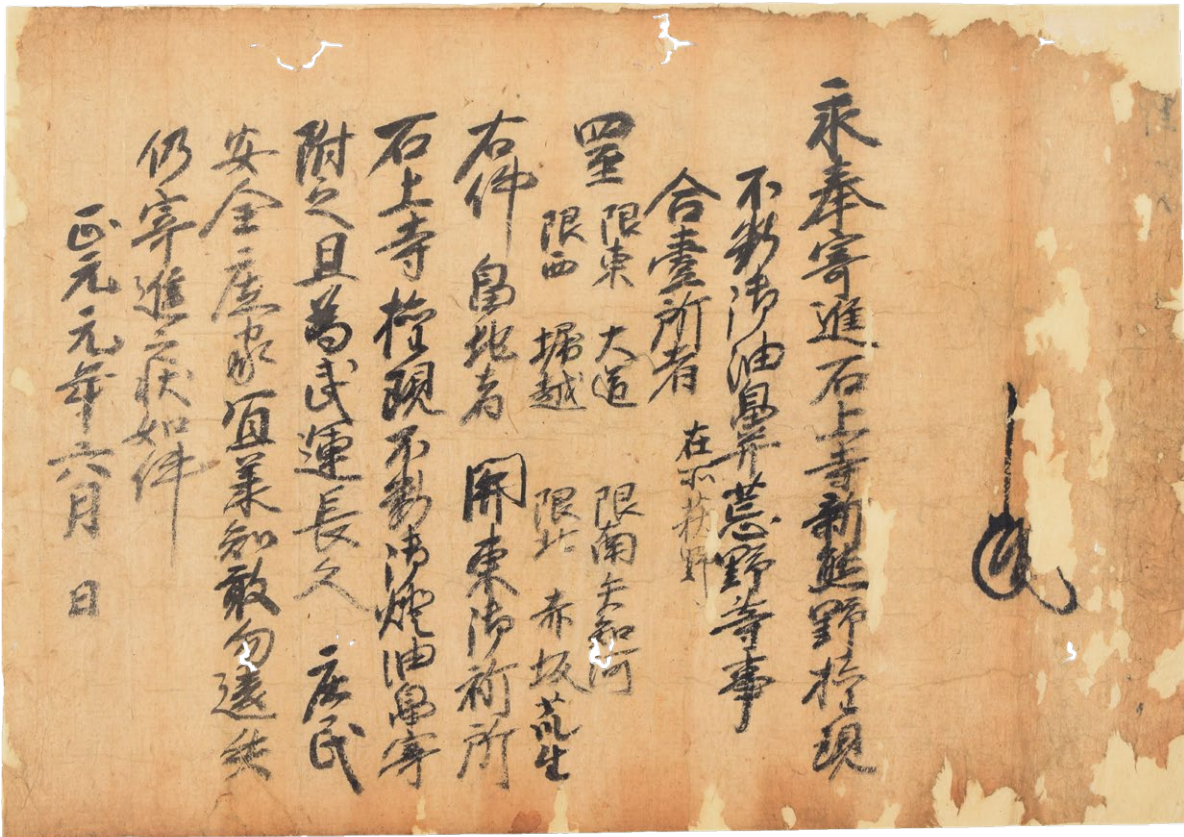 永奉寄進石上寺新熊野権現
不断御油畠并荒野等事
合壹所者 在所萩野
四至 限東 大道 限南 矢知河
限西 堀越 限北 赤坂荒生
右件畠地者 関東御祈所
石上寺権現不断御燈油畠寄
附之且為武運長久 庶民
安全庄家宜承知敢勿違失
仍寄進之状如件
正元元年六月 日